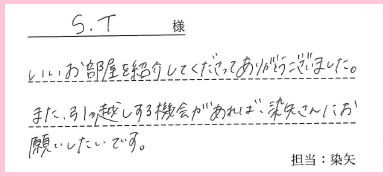 S.T 様
いいお部屋を紹介してくださってありがとうございました。
また、引っ越しする機会があれば、染矢さんにお
願いしたいです。
担当：染矢